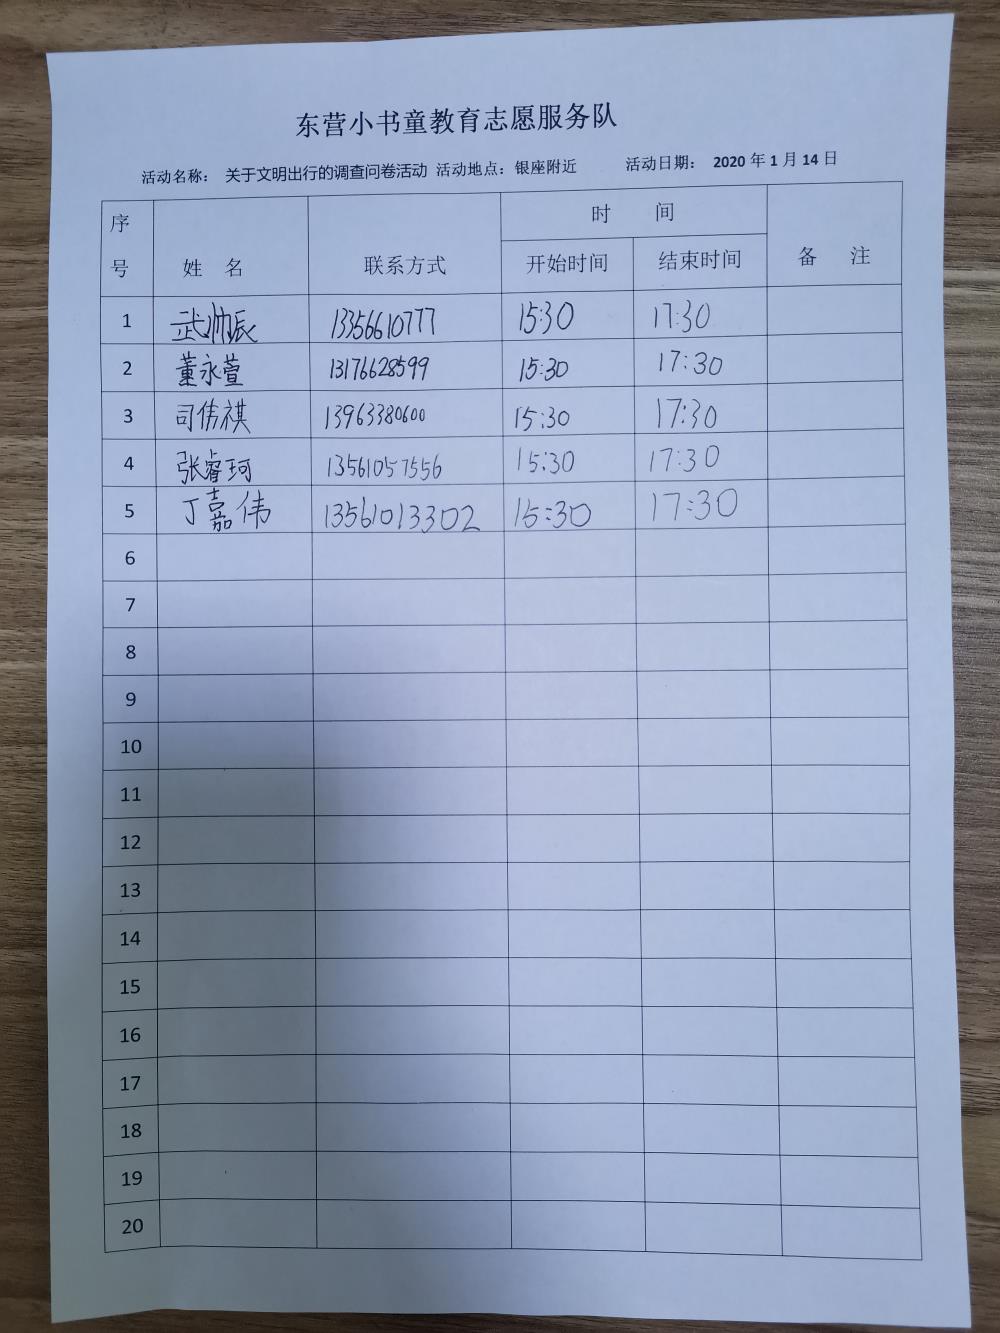 东营小书童教育志愿服务队
活动名称： 关于文明出行的调查问卷活动 活动地点：银座附近 活动日期： 2020 年 1 月 14 日
序号 姓 名 联系方式 时 间 备 注
开始时间 结束时间
1 武帅辰 13356610777 15:30 17:30
2 董永萱 13176628599 15:30 17:30
3 司伟祺 13963380600 15:30 17:30
4 张睿珂 13561057556 15:30 17:30
5 丁嘉伟 13561013302 15:30 17:30
6
7
8
9
10
11
12
13
14
15
16
17
18
19
20